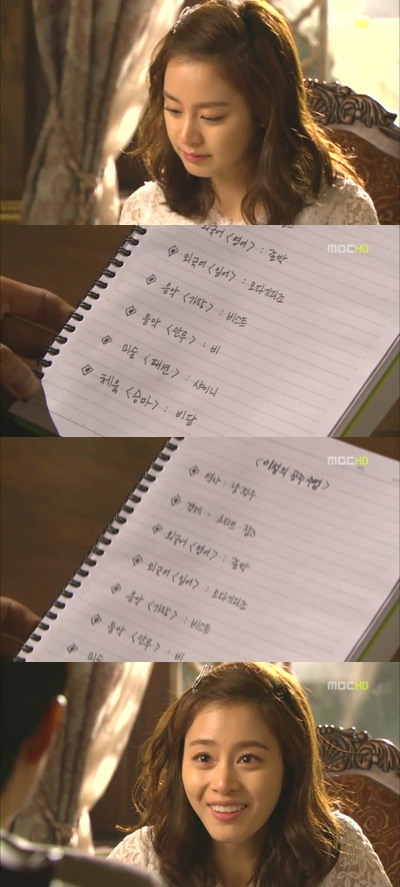 MBC HD
외국어 <영어> : 존박
외국어 <일어> : 오다기리죠
음악 <가창> : 비스트
음악 <안무> : 비
미술 <패션> : 샤이니
체육 <승마> : 비담
MBC HD
<이설의 공주 수업>
역사 : 남정우
경제 : 스티브 잡스
외국어 <영어> : 존박
외국어 <일어> : 오다기리죠
음악 <가창> : 비스트
음악 <안무> : 비
미술
MBC HD